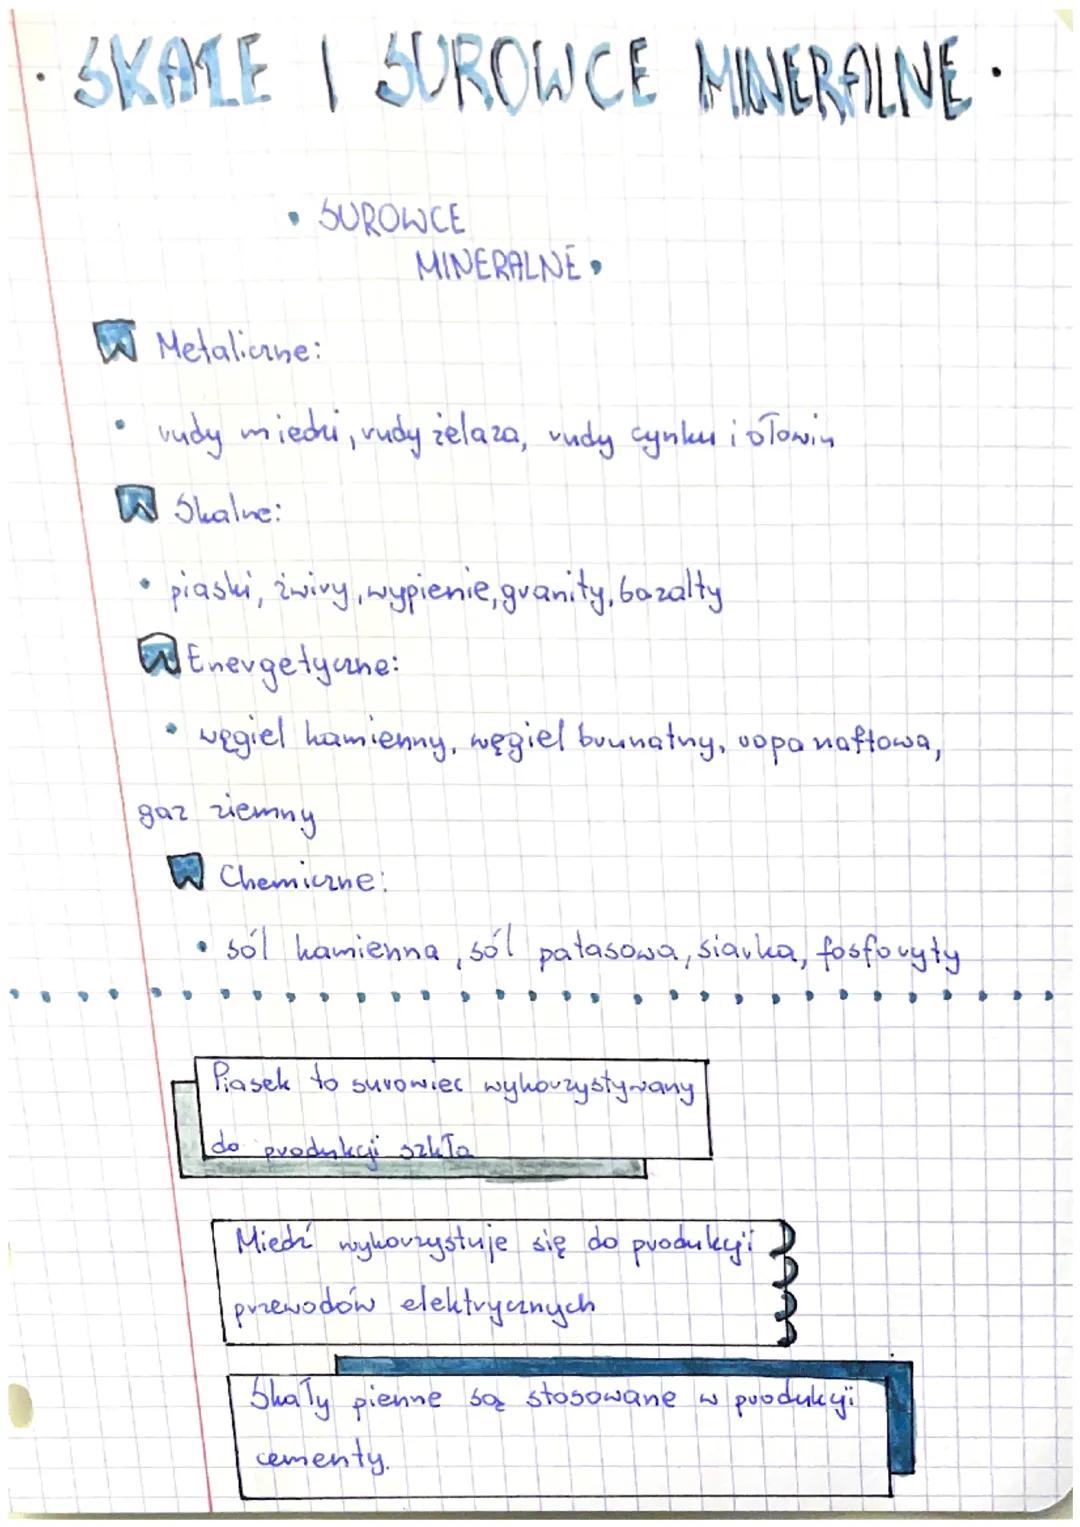 • SKAŁE I SUROWCE MINERALNE •
• SUROWCE
MINERALNE •
Metaliczne:
• rudy miedzi, rudy żelaza, rudy cynku i ołowiu
Skalne:
• piaski, żwiry, wypienie, granity, bazalty
Energetyczne:
• węgiel kamienny, węgiel brunatny, ropa naftowa,
gaz ziemny
Chemiczne:
• sól kamienna, sól patasowa, siarka, fosforyty
Piasek to surowiec wykorzystywany
do produkcji szkła
Miedź wykorzystuje się do produkcji
przewodów elektrycznych
Skały pienne są stosowane w produkcji
cementy.